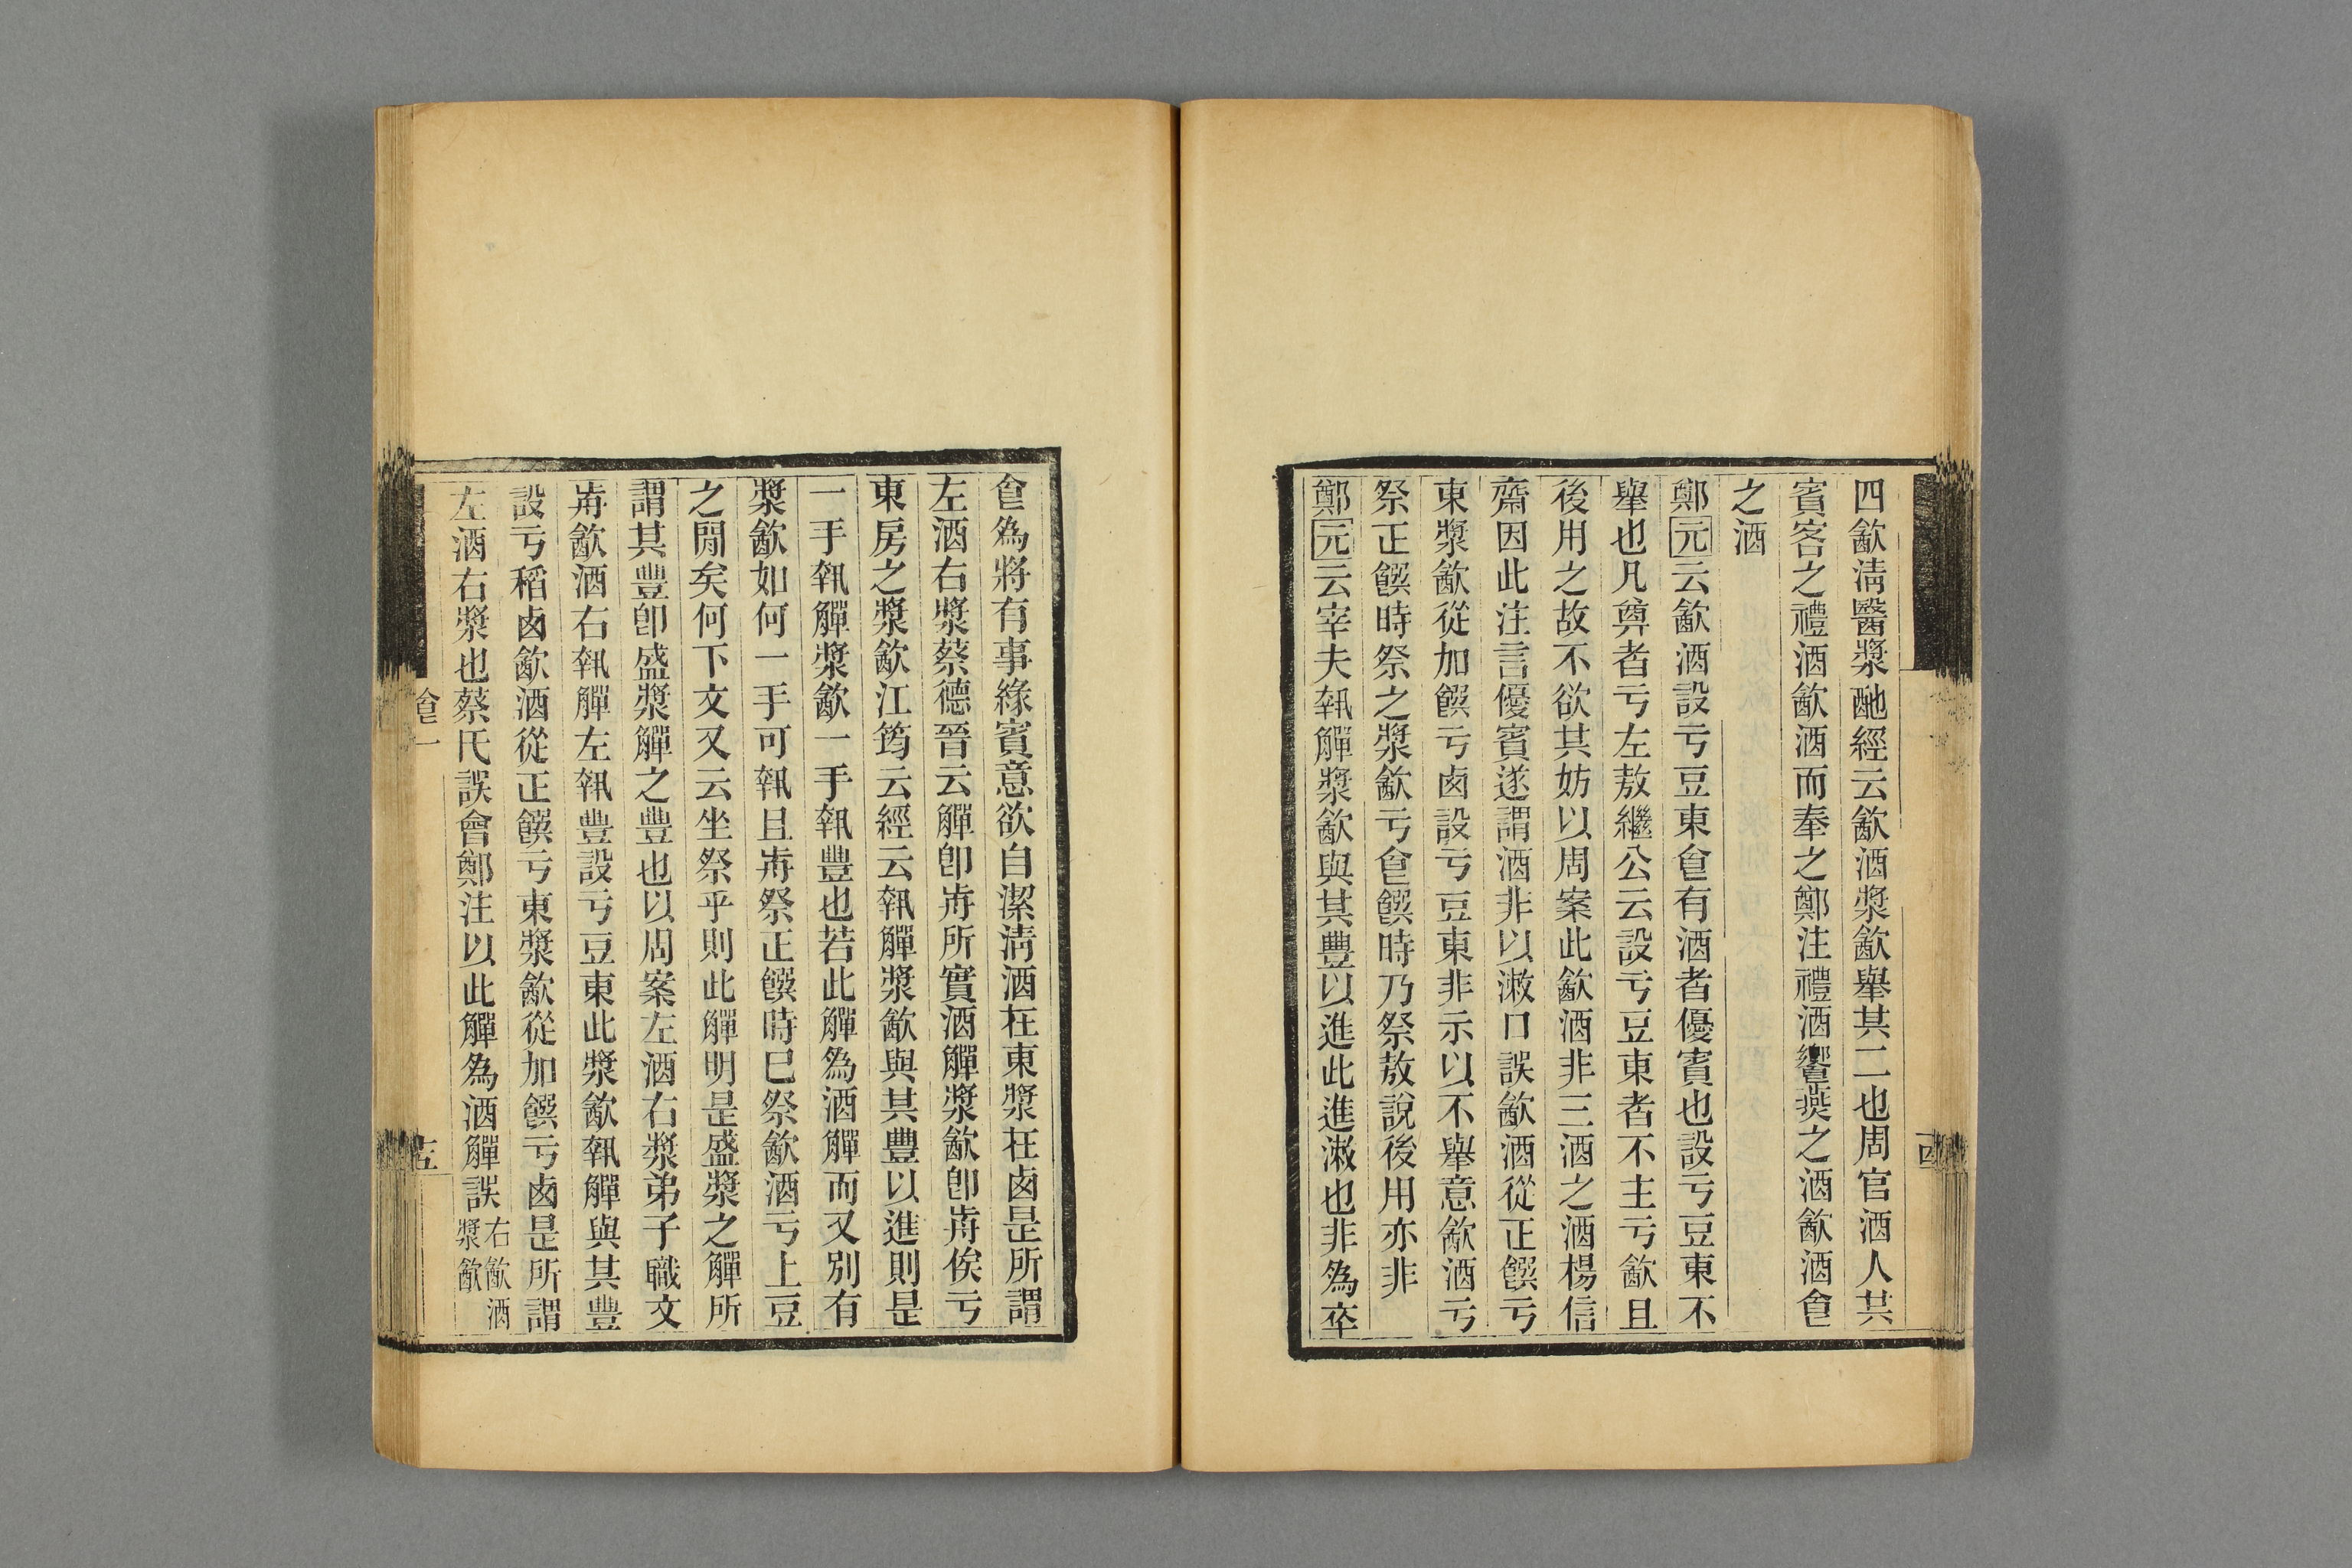 四㱃淸醫漿酏經云㱃酒漿㱃舉其二也周官酒人共
賓客之禮酒㱃酒而奉之鄭注禮酒饗燕之酒㱃酒𠊊
之酒
鄭元云㱃酒設亏豆東𠊊有酒者優賓也設亏豆東不
舉也凡奠者亏左敖繼公云設亏豆東者不主亏㱃且
後用之故不欲其妨以周案此㱃酒非三酒之酒楊信
齋因此注言優賓遂謂酒非以漱口誤㱃酒從正饌亏
東漿㱃從加饌亏卥設亏豆東非示以不舉意㱃酒亏
祭正饌時祭之漿㱃亏𠊊饌時乃祭敖說後用亦非
鄭元云宰夫執觶漿㱃與其豐以進此進漱也非為卒
𠊊為將有事緣賓意欲自潔淸酒在東漿在卥是所謂
左酒右漿蔡德晉云觶卽歬所實酒觶漿㱃卽歬俟亏
東房之漿㱃江筠云經云執觶漿㱃與其豐以進則是
一手執觶漿㱃一手執豐也若此觶為酒觶而又別有
漿㱃如何一手可執且歬祭正饌時巳祭㱃酒亏上豆
之閒矣何下文又云坐祭乎則此觶明是盛漿之觶所
謂其豐卽盛漿觶之豐也以周案左酒右漿弟子職文
歬㱃酒右執觶左執豐設亏豆東此漿㱃執觶與其豐
設亏稻卥㱃酒從正饌亏東漿㱃從加饌亏卥是所謂
左酒右漿也蔡氏誤會鄭注以此觶為酒觶誤右㱃酒
漿㱃
𠊊一
十五